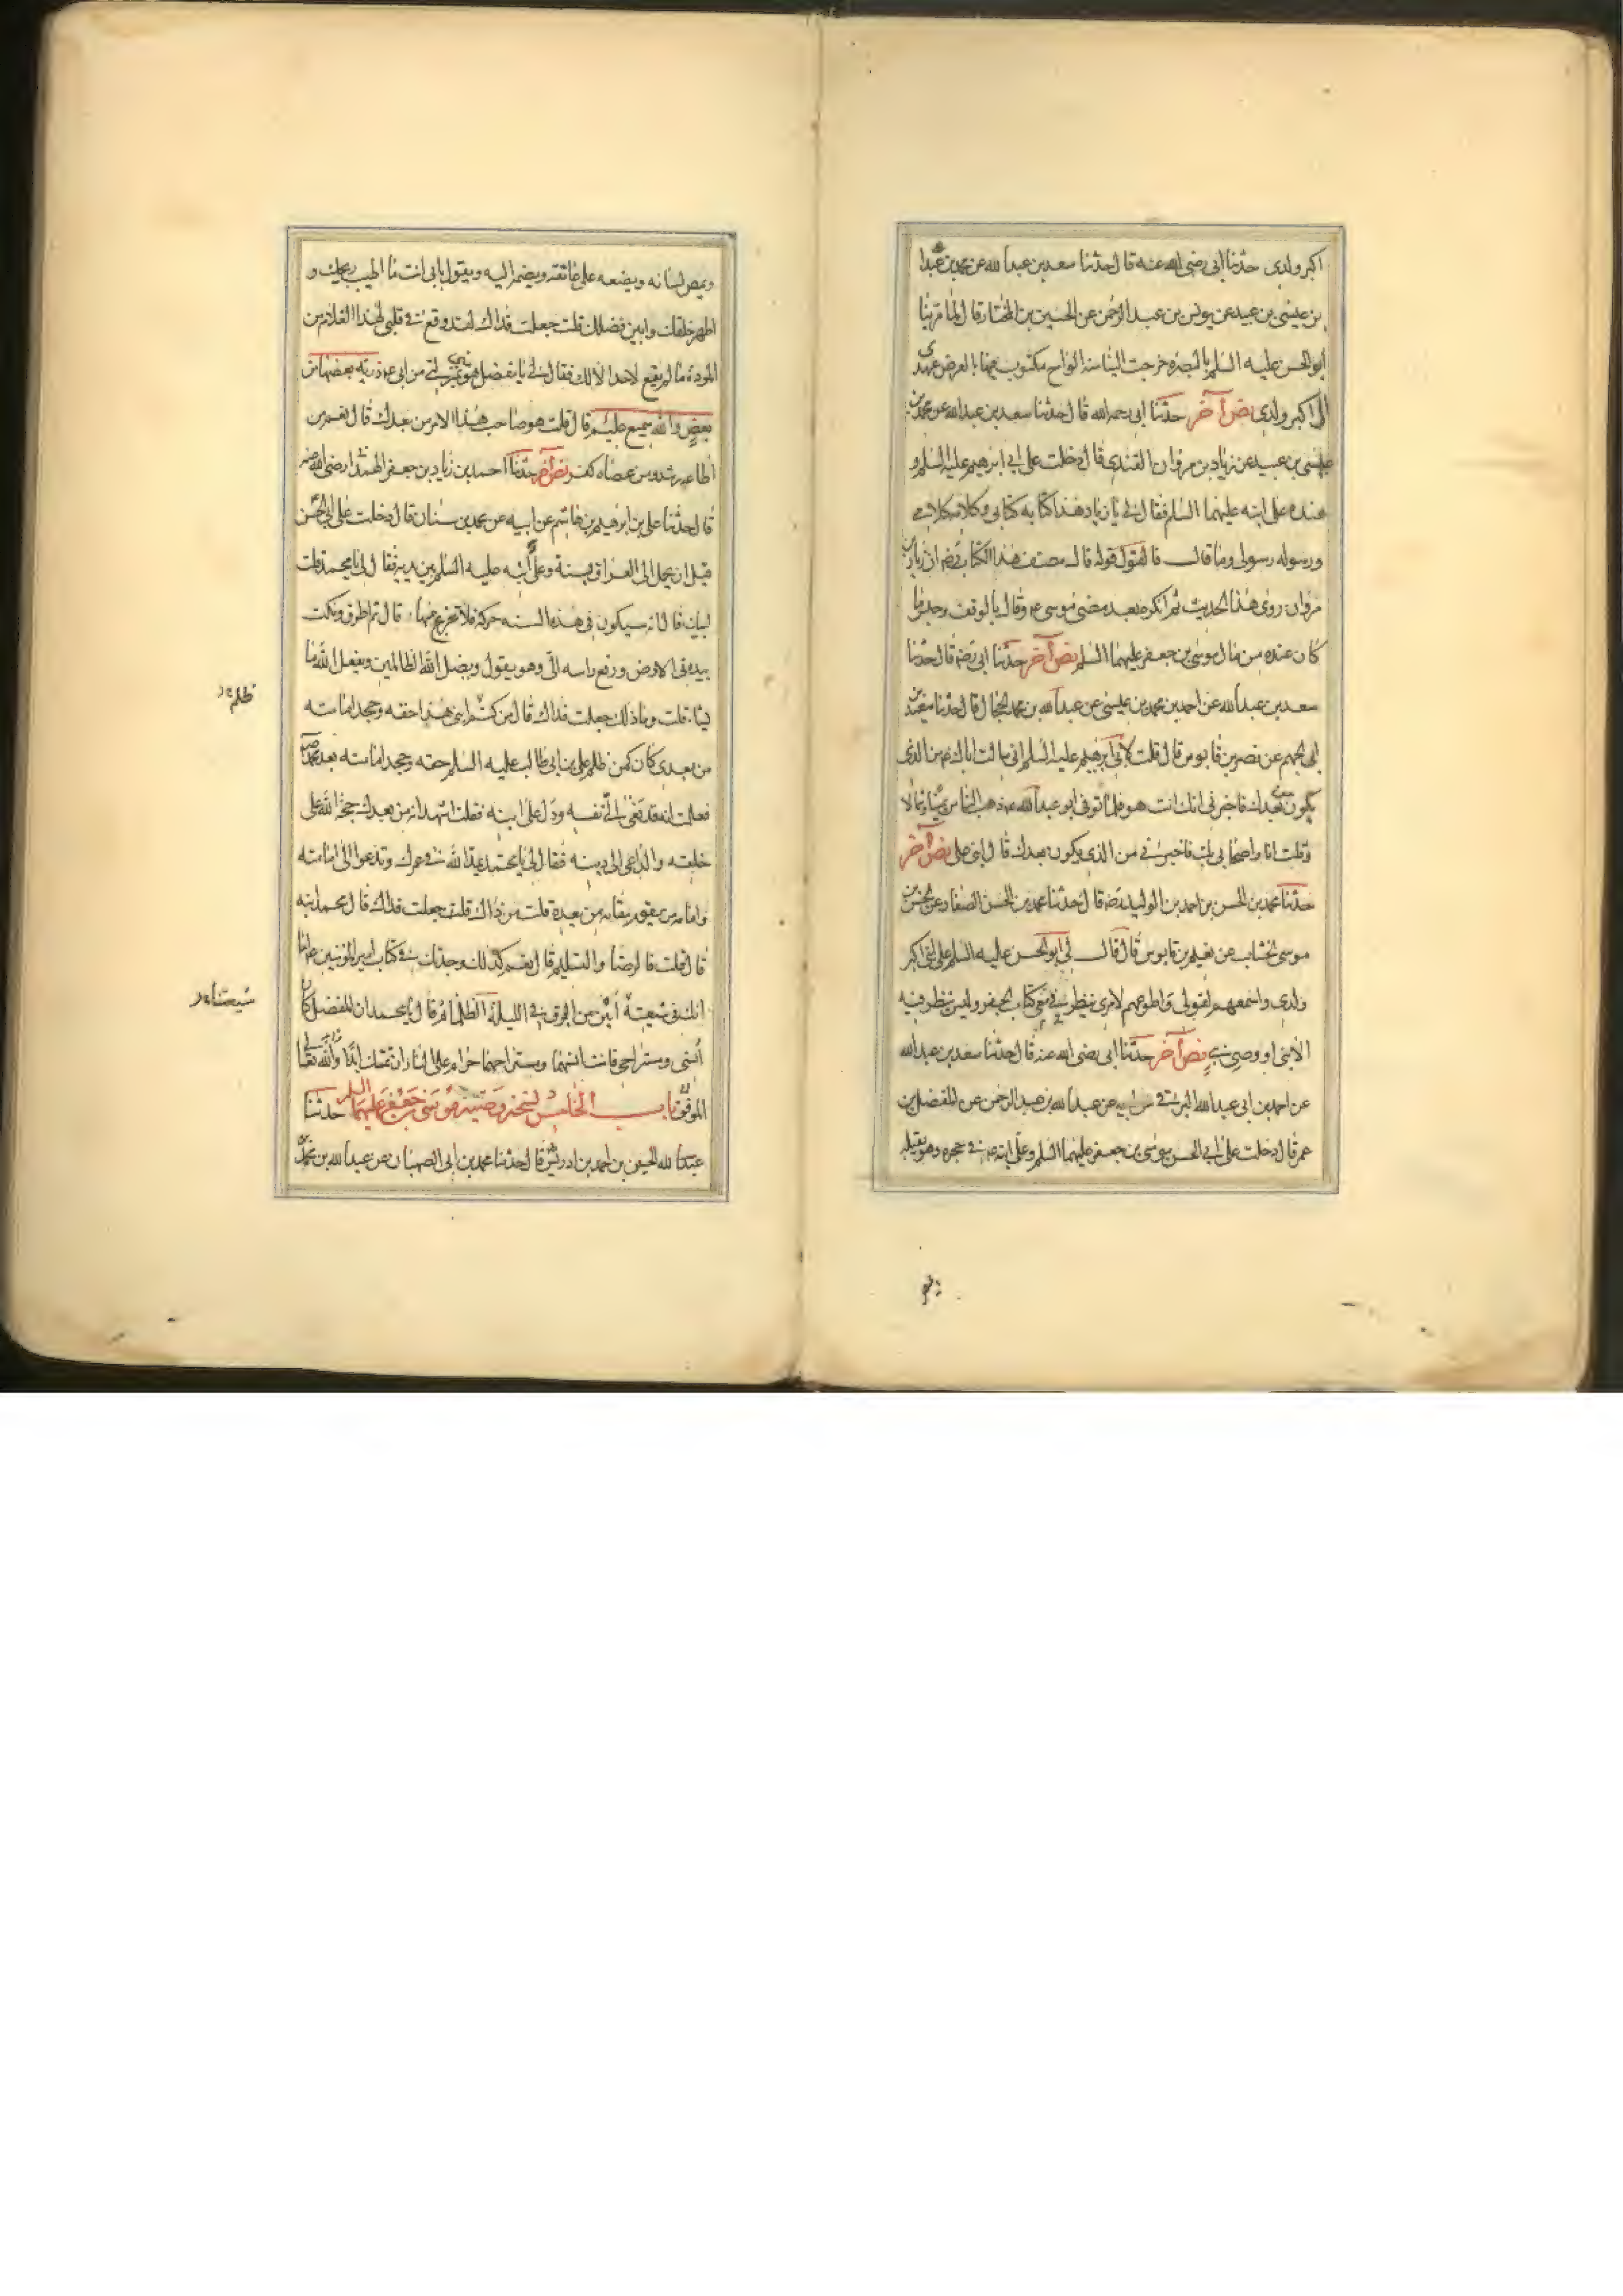 اكبر ولدى حدثنا ابى رضى الله عنه قال حدثنا سعد بن عبدا لله عن محمد بن
بن عيسى بن عبيد عن يونس بن عبد الرحمن عن الحسين بن المختار قال لما مر بنا
ابو الحسن عليه السلم بالبصره خرجت الينا منه الواح مكتوب فيها بالعرض عهدى
الى اكبر ولدى نص آخر حدثنا ابى رحمه الله قال حدثنا سعد بن عبدالله عن محمد بن
عيسى بن عبيد عن زياد بن مروان القندى قال دخلت على ابى ابرهيم عليه السلم و
عنده على ابنه عليهما السلم فقال لى يا زياد هذا كتابه كتابى وكلامه كلامى
ورسوله رسولى وما قال فالقول قوله قال مصنف هذا الكتاب رضه ان زياد بن
مروان روى هذا الحديث ثم انكره بعد مضى موسى ع وقال بالوقف وحبس ما
كان عنده من مال موسى بن جعفر عليهما السلم نص آخر حدثنا ابى رضه قال حدثنا
سعد بن عبدالله عن احمد بن محمد بن عيسى عن عبدالله بن محمد الحجال قال حدثنا سعيد بن
ابى الجهم عن نصر بن قابوس قال قلت لابى ابرهيم عليه السلم انى سالت اباك ع من الذى
يكون بعدك فاخبرنى انك انت هو فلما توفى ابو عبدالله ع ذهب الناس يمينا وشمالا
وقلت انا واصحابى بك فاخبرنى من الذى يكون بعدك قال ابنى على نص آخر
حدثنا محمد بن الحسن بن احمد بن الوليد رضه قال حدثنا محمد بن الحسن الصفار عن الحسن بن
موسى الخشاب عن نعيم بن قابوس قال قال لى ابو الحسن عليه السلم على ابنى اكبر
ولدى واسمعهم لقولى واطوعهم لامرى ينظر معى فى كتاب الجفر وليس ينظر فيه
الا نبى او وصى نبى نص آخر حدثنا ابى رضى الله عنه قال حدثنا سعد بن عبدالله
عن احمد بن ابى عبدالله البرقى عن ابيه عن عبدالله بن عبدالرحمن عن المفضل بن
عمر قال دخلت على ابى الحسن موسى بن جعفر عليهما السلم وعلى ابنه ع فى حجره وهو يقبله
ويمص لسانه ويضعه على عاتقه ويضمه اليه ويقول بابى انت ما اطيب ريحك و
اطهر خلقك وابين فضلك قلت جعلت فداك لقد وقع فى قلبى لهذا الغلام من
المودة ما لم يقع لاحد الا لك فقال لى يا مفضل هو منى بمنزلتى من ابى ع ذرية بعضها من
بعض والله سميع عليم قال قلت هو صاحب هذا الامر من بعدك قال نعم من
اطاعه رشد ومن عصاه كفر نص آخر حدثنا احمد بن زياد بن جعفر الهمدانى رضى الله عنه
قال حدثنا على بن ابرهيم بن هاشم عن ابيه عن محمد بن سنان قال دخلت على ابى الحسن
قبل ان يحمل الى العراق بسنة وعلى ابنه عليه السلم بين يديه فقال لى يا محمد قلت
لبيك قال انه سيكون فى هذه السنه حركة فلا تجزع منها ثم قال ثم اطرق ونكت
بيده فى الارض ورفع راسه الى وهو يقول ويضل الله الظالمين ويفعل الله ما
يشاء قلت وما ذلك جعلت فداك قال من ظلم ابنى هذا حقه وجحد امامته
من بعدى كان كمن ظلم على بن ابى طالب عليه السلم حقه وجحد امامته بعد محمد ص
فعلمت انه قد نعى الى نفسه ودل على ابنه فقلت اشهد انه من بعدك حجة الله على
خلقه والداعى الى دينه فقال لى يا محمد يمد الله فى عمرك وتدعوا الى امامته
وامامة من يقوم مقامه من بعده قلت من ذاك قلت جعلت فداك قال محمد ابنه
قال قلت فالرضا والتسليم قال نعم كذلك وجدتك فى كتاب امير المؤمنين ع اما
انك فى شيعته أبين من البرق فى الليلة الظلماء ثم قال يا محمد ان المفضل كان
أنسى ومستراحى وانت انسهما ومستراحهما حرام على النار ان تمسك ابدا والله تعالى
الموفق باب الخامس فى نسخة وصية موسى بن جعفر عليهما السلم حدثنا
عبدالله الحسين بن احمد بن ادريس قال حدثنا محمد بن ابى الصهبان عن عبدالله بن محمد
ظلم
شيعتنا